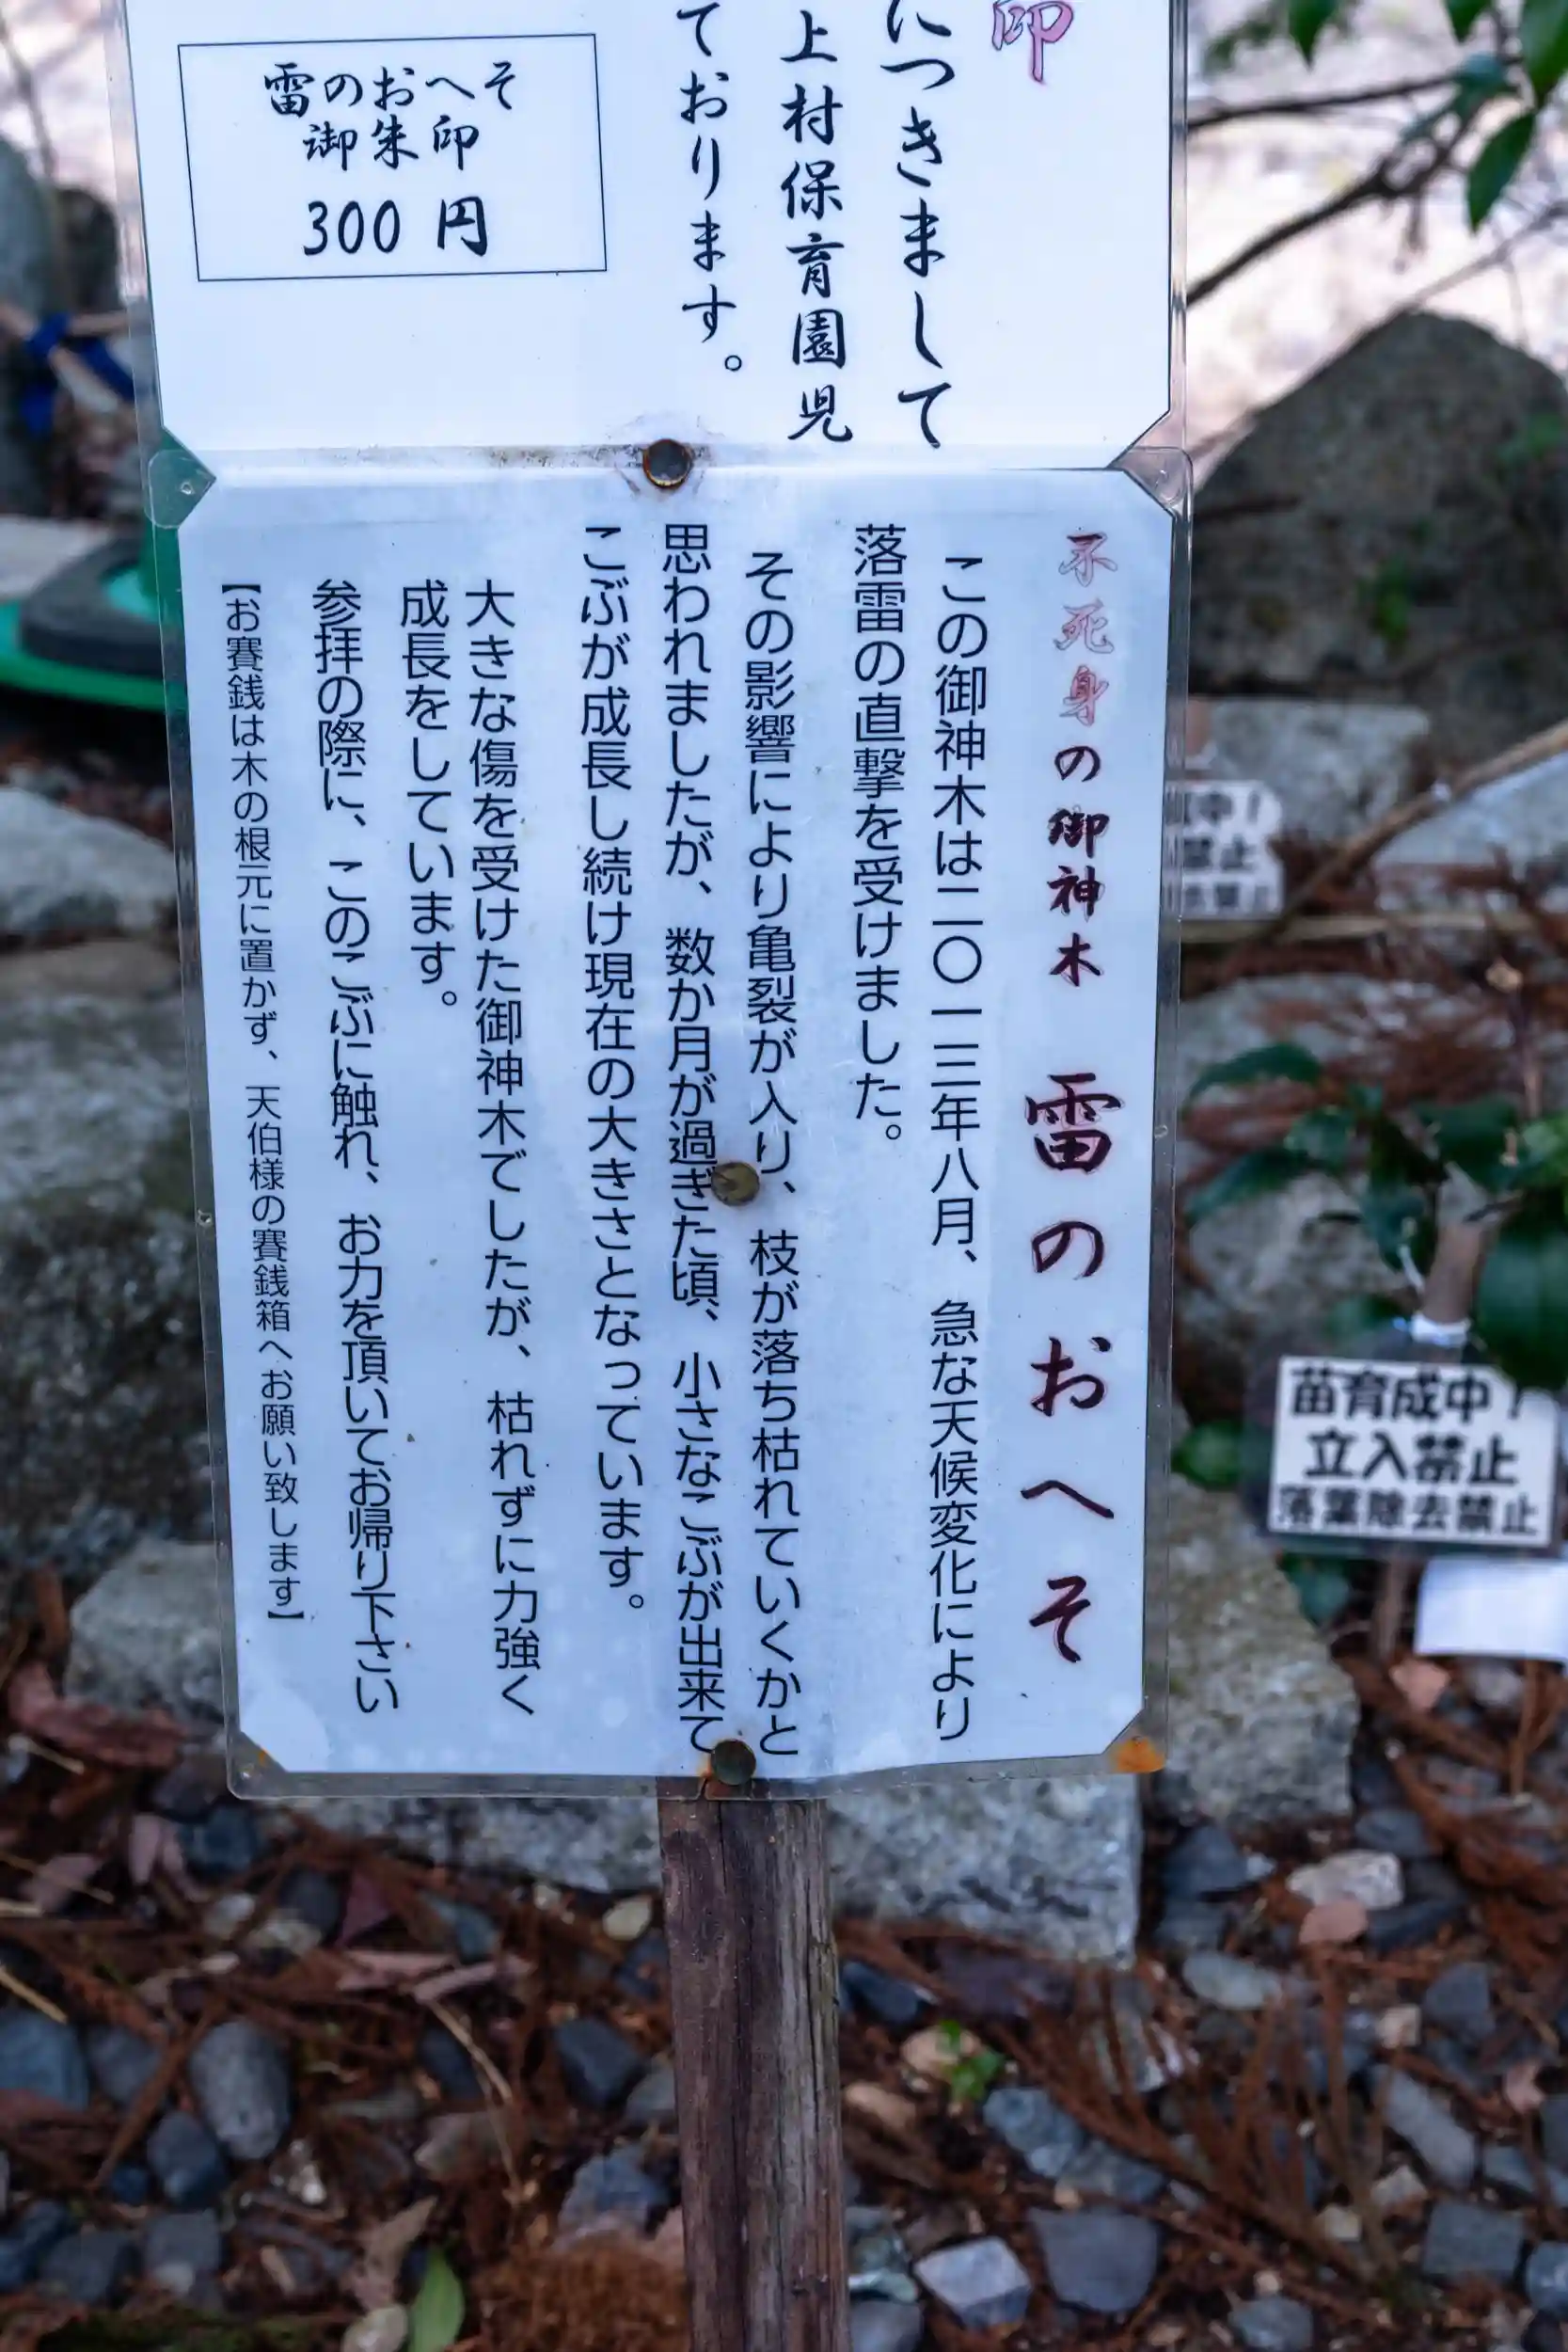 印
につきまして
上村保育園児
ております。
雷のおへそ
御朱印
300 円
不死身の御神木 雷のおへそ
この御神木は二〇一三年八月、急な天候変化により
落雷の直撃を受けました。
その影響により亀裂が入り、枝が落ち枯れていくかと
思われましたが、数か月が過ぎた頃、小さなこぶが出来て
こぶが成長し続け現在の大きさとなっています。
大きな傷を受けた御神木でしたが、枯れずに力強く
成長をしています。
参拝の際に、このこぶに触れ、お力を頂いてお帰り下さい
【お賽銭は木の根元に置かず、天伯様の賽銭箱へお願い致します】
中!
禁止
苗育成中!
立入禁止
落葉除去禁止